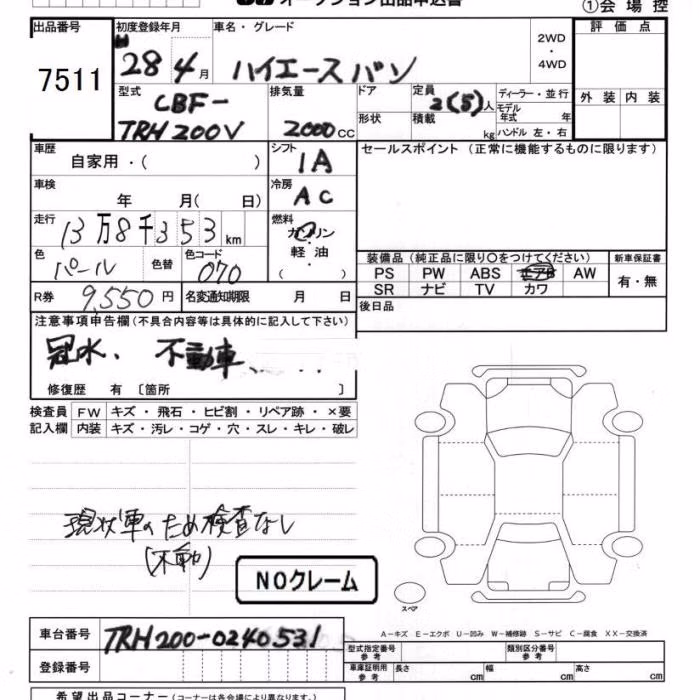 オークション出品申込書
①会場控
出品番号 初度登録年月 車名・グレード 2WD・4WD 評価点
7511 H 28 4月 ハイエースバン
型式 CBF-TRH200V 排気量 2000cc ドア 形状 定員 2(5)人 積載 kg ディーラー・並行 モデル年式 年 ハンドル 左・右 外装 内装
車歴 自家用・( ) シフト 1A セールスポイント(正常に機能するものに限ります)
車検 年 月( 日) 冷房 AC
走行 13万8千353km 燃料 ガソリン・軽油・( )
色 パール 色替 色コード 070
装備品(純正品に限り〇をつけてください) 新車保証書
PS PW ABS エアB AW 有・無
SR ナビ TV カワ
R券 9,550円 名変通知期限 月 日 後日品
注意事項申告欄(不具合内容等は具体的に記入して下さい)
冠水、不動車、
修復歴 有〔箇所 〕
検査員 FW キズ・飛石・ヒビ割・リペア跡・×要
記入欄 内装 キズ・汚レ・コゲ・穴・スレ・キレ・破レ
現状車のため検査なし
(不動)
NOクレーム
スペア
A-キズ E-エクボ U-凹み W-補修跡 S-サビ C-腐食 XX-交換済
車台番号 TRH200-0240531 型式指定番号 参考 類別区分番号 参考
登録番号 車庫証明用 参考 長さ cm 幅 cm 高さ cm
希望出品コーナー(コーナーは各会場により異なります。)